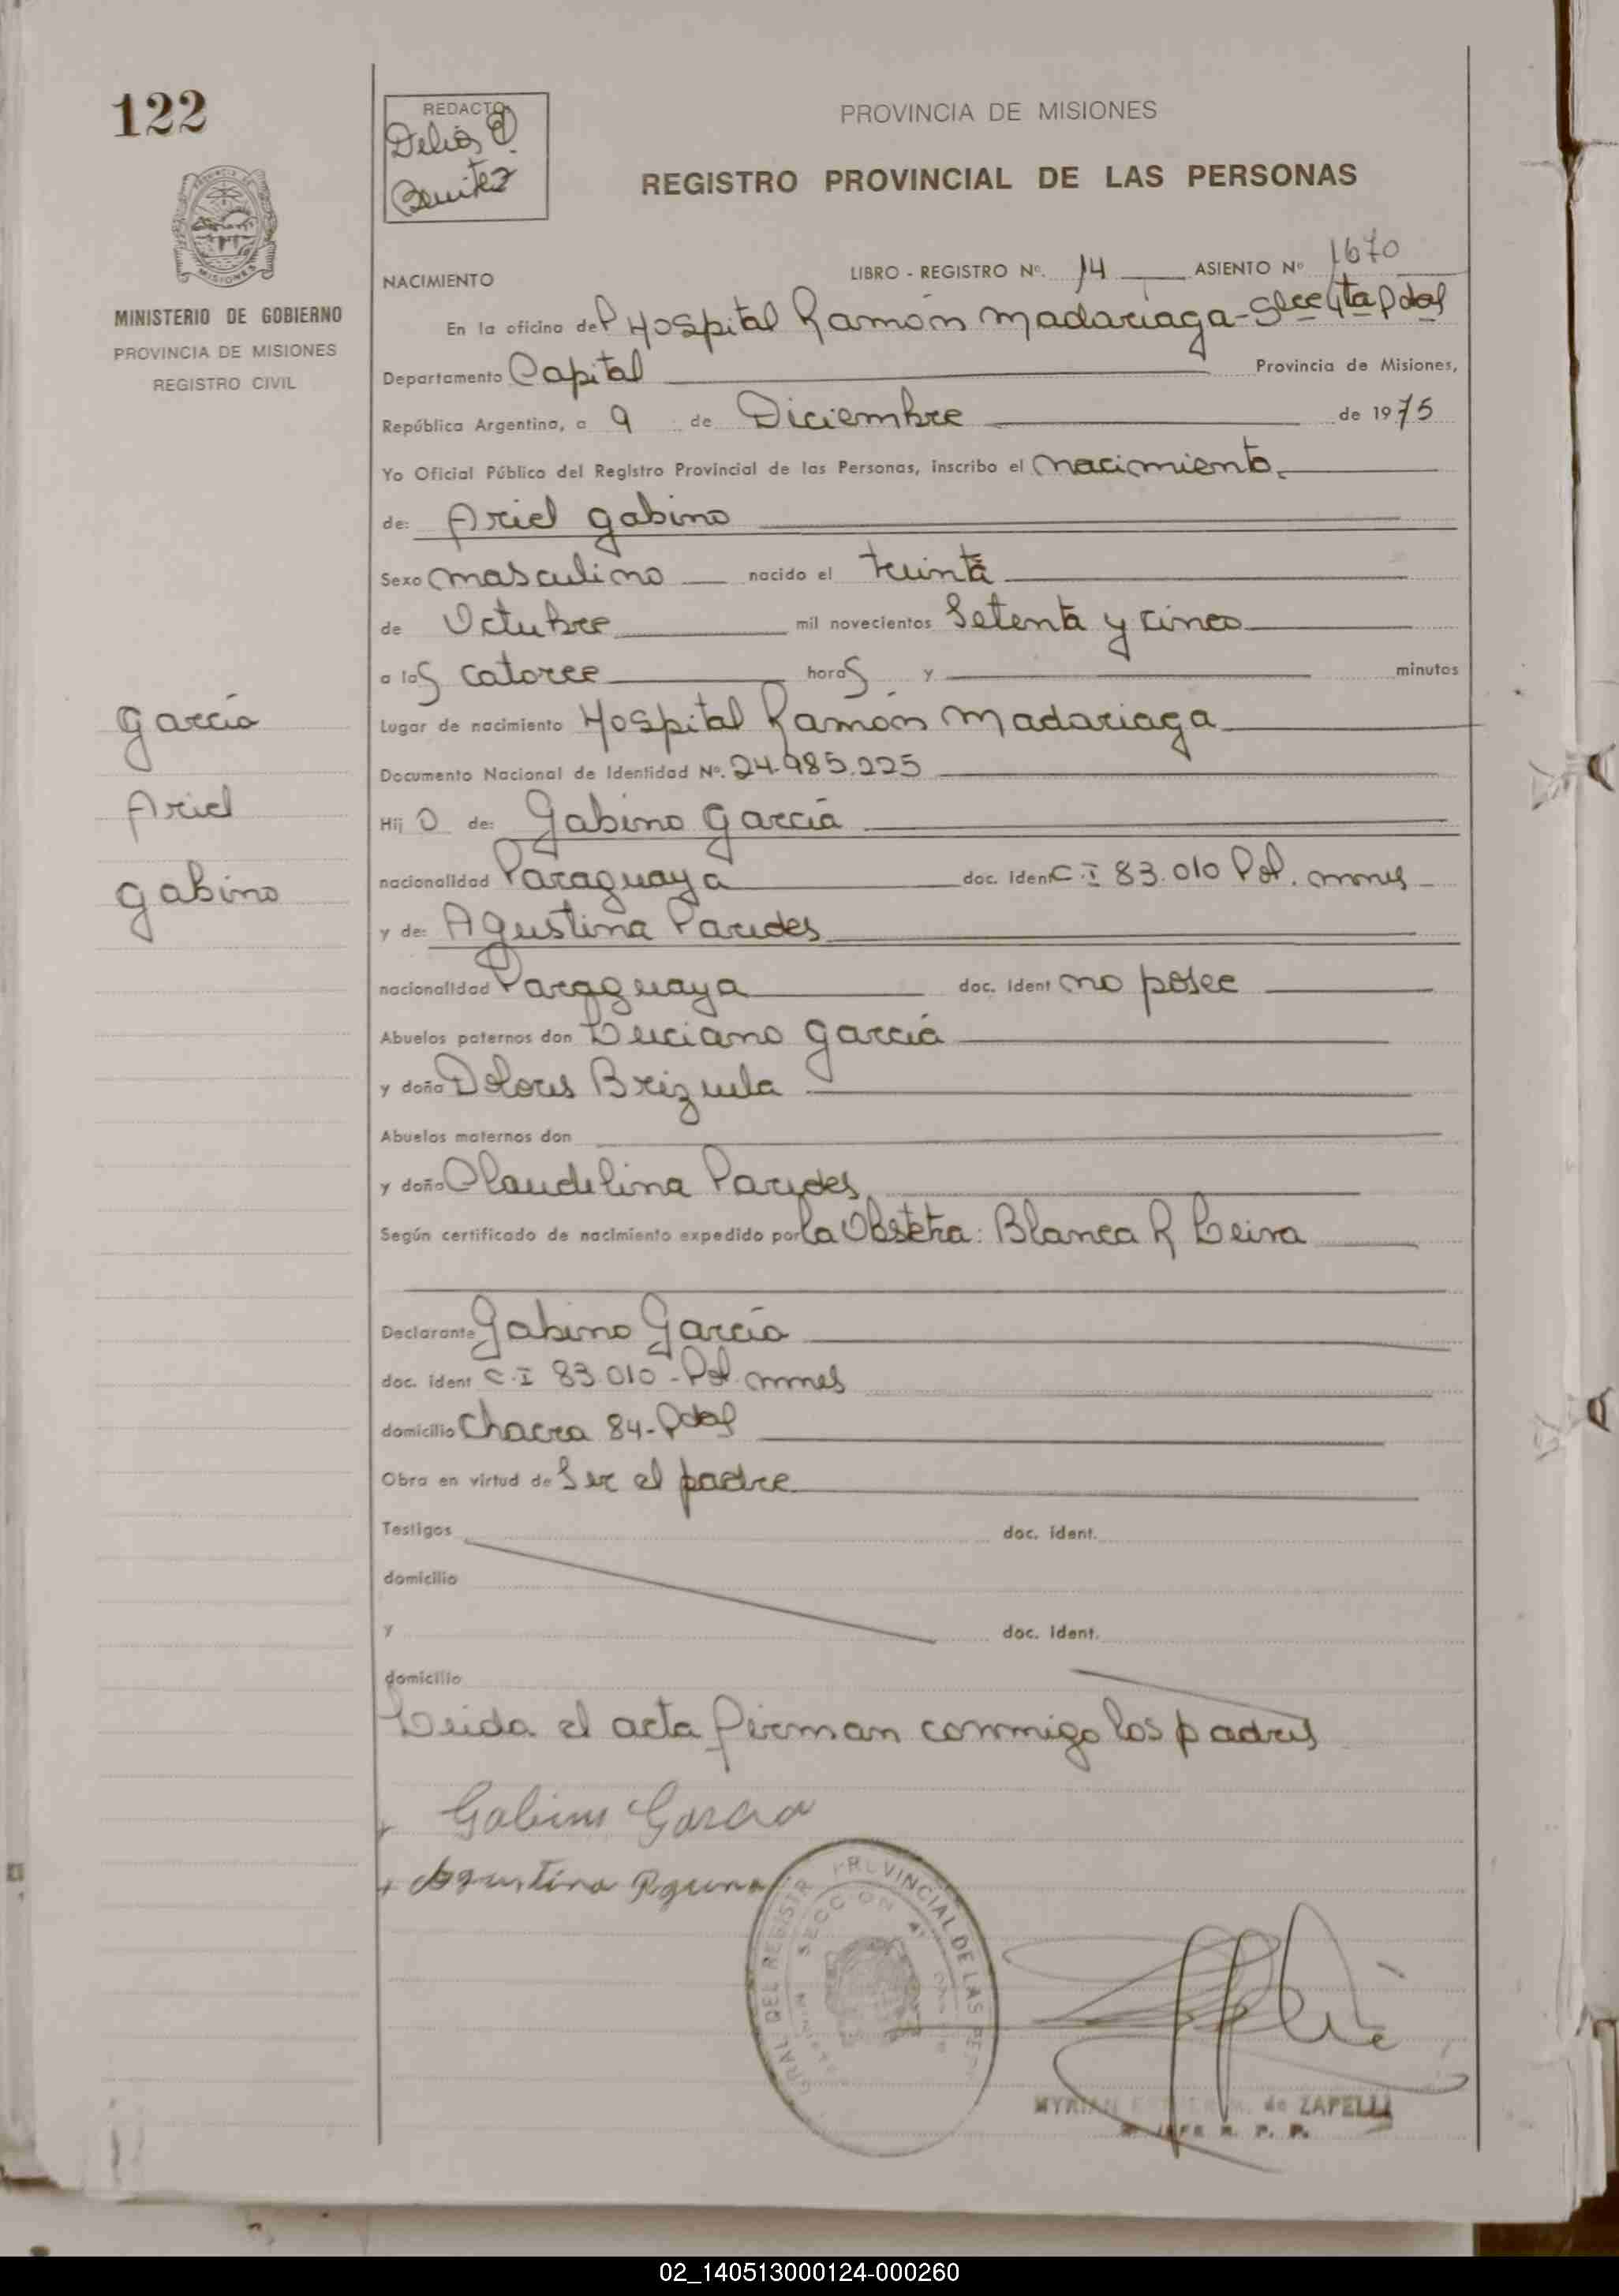 122
REDACTO
Delia
Benitez
PROVINCIA DE MISIONES
REGISTRO PROVINCIAL DE LAS PERSONAS
MISIONES
MINISTERIO DE GOBIERNO
PROVINCIA DE MISIONES
REGISTRO CIVIL
NACIMIENTO LIBRO - REGISTRO Nº. 14 ASIENTO Nº 1670
En la oficina del Hospital Ramón Madariaga - Secc 4ta Pdas
Departamento Capital Provincia de Misiones,
República Argentina, a 9 de Diciembre de 1975
Yo Oficial Público del Registro Provincial de las Personas, inscribo el nacimiento
de: Ariel Gabino
Sexo masculino nacido el treinta
de Octubre mil novecientos Setenta y cinco
a las catorce horas y minutos
Lugar de nacimiento Hospital Ramón Madariaga
Documento Nacional de Identidad Nº. 24.985.225
Hijo de: Gabino García
nacionalidad Paraguaya doc. ident C.I 83.010 Pol. mnes
y de: Agustina Paredes
nacionalidad Paraguaya doc. ident no posee
Abuelos paternos don Luciano García
y doña Dolores Brizuela
Abuelos maternos don
y doña Claudelina Paredes
Según certificado de nacimiento expedido por la Obstetra: Blanca R Leiva
Declarante Gabino García
doc. ident C.I 83.010 - Pol. mnes
domicilio Chacra 84 - Pdas
Obra en virtud de Ser el padre
Testigos doc. ident.
domicilio
y doc. ident.
domicilio
Leida el acta firman conmigo los padres
García
Ariel
Gabino
Gabino Garcia
Agustina
GRAL DEL REGISTRO PROVINCIAL DE LAS PER
SECCION 4ª
MYRIAN de ZAPELLI
JEFE R. P. P.
02_140513000124-000260